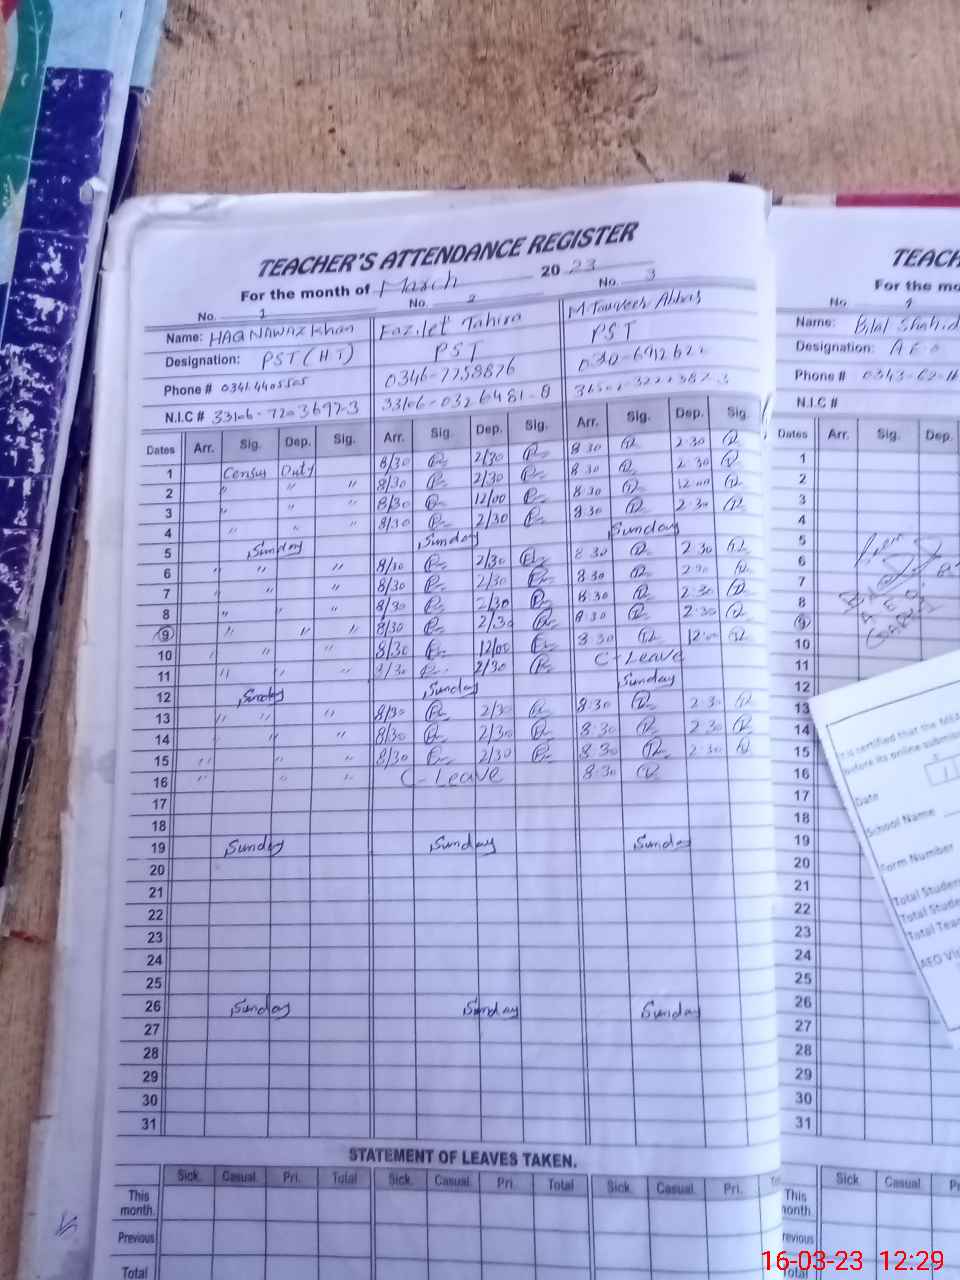 TEACHER'S ATTENDANCE REGISTER
For the month of March 20 23
No. 1 No. 2 No. 3
Name: HAQ NAWAZ Khan Fazilet Tahira M Tanveer Abbas
Designation: PST (HT) PST PST
Phone # 0346-7758876
N.I.C #
Dates Arr. Sig. Dep. Sig. Arr. Sig. Dep. Sig. Arr. Sig. Dep. Sig.
1 Census Duty 8/30 2/30 8:30 2:30
2 " " " 8/30 2/30 8:30 2:30
3 " " " 8/30 12/00 8:30 12:00
4 " " " 8/30 2/30 8:30 2:30
5 Sunday Sunday Sunday
6 " " " 8/30 2/30 8:30 2:30
7 " " " 8/30 2/30 8:30 2:30
8 " " " 8/30 2/30 8:30 2:30
9 " " " 8/30 2/30 8:30 2:30
10 " " " 8/30 12/00 8:30 12:00
11 " " " 8/30 2/30 C-Leave
12 Sunday Sunday Sunday
13 " " " 8/30 2/30 8:30 2:30
14 " " " 8/30 2/30 8:30 2:30
15 " " " 8/30 2/30 8:30 2:30
16 " " " C-Leave 8:30
17
18
19 Sunday Sunday Sunday
20
21
22
23
24
25
26 Sunday Sunday Sunday
27
28
29
30
31
STATEMENT OF LEAVES TAKEN.
Sick. Casual. Pri. Total Sick. Casual. Pri. Total Sick. Casual. Pri.
This month.
Previous
Total
TEACH
For the mo
No. 4
Name: Bilal Shahid
Designation: AEO
Phone # 0343-62
N.I.C #
Dates Arr. Sig. Dep.
1
2
3
4
5
6
7
8
9
10
11
12
13
14
15
16
17
18
19
20
21
22
23
24
25
26
27
28
29
30
31
Sick Casual
This month.
Previous
Total
It is certified that the
before its online submiss
Date
School Name
Form Number
Total Studen
Total Stude
Total Tea
AEO Vis
16-03-23 12:29